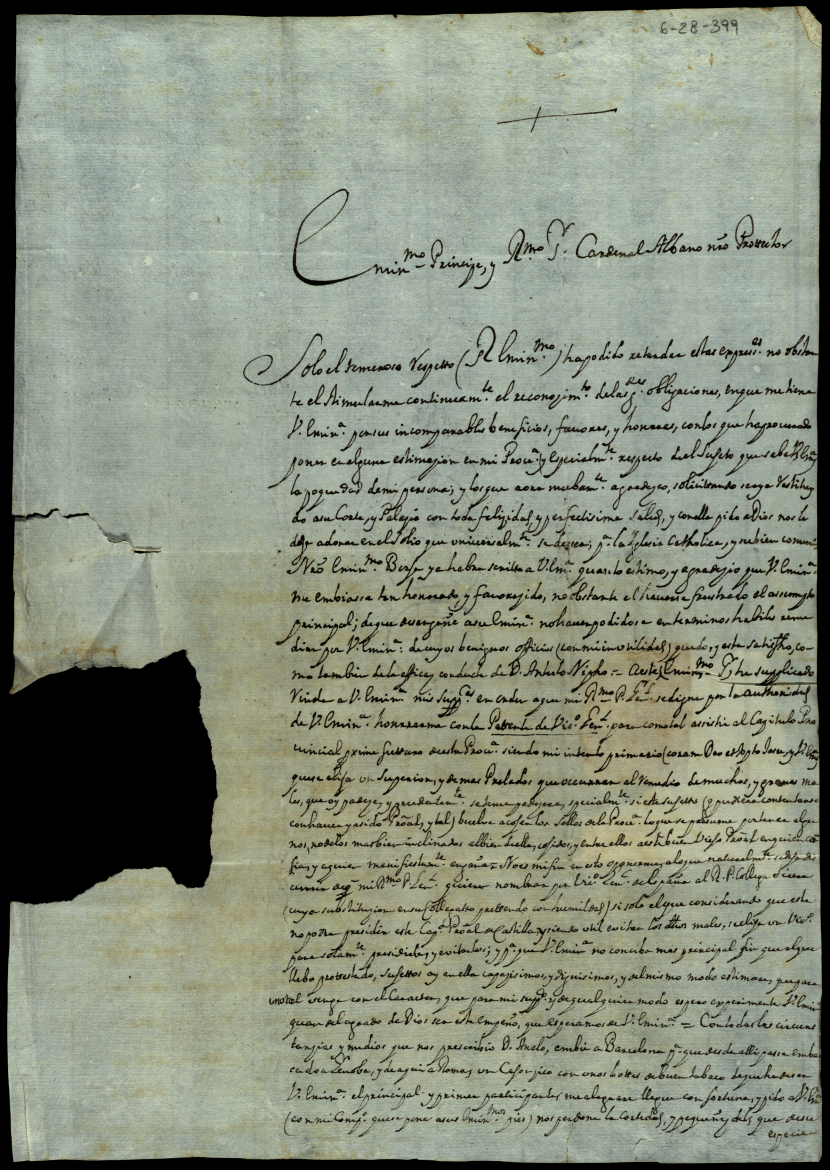 6-28-399
Emin.mo Principe, y R.mo S.r Cardenal Albano nro Protector
Solo el temeroso respetto (S.r Emin.mo) ha podido retardar estas expres.es no obstan
te el stimularme continuam.te el reconozim.to de las g.des obligaciones, en que me tiene
V. Emin.a por sus incomparables beneficios, favores, y honores, con los que ha procurado
poner en alguna estimazion en mi Prov.a y especialm.te respecto de el sugeto que sabe V. Em.a
la poquedad de mi persona; y los que aora nuebam.te agradezco, solicittando se aya restituy
do a su Corte, y Palazio con toda felizidad, y perfectisima salud, y con ella pido a Dios nos le
dexe adorar en el solio que universalm.te se desea; p.a la Iglesia Catholica, y su bien comun.
Nro Emin.mo Borja ya habra scritto a V. Em.a quanto estimo, y agradezio que V. Emin.a
me embiasse tan honrado y favorezido, no obstante el haverse frustrado el assumpto
principal; de que desengañe a su Emin.a no haver podido se en terminos habiles reme
diar por V. Emin.a de cuyos benignos officios (con mi inutilidad) quedo, y esta satisfho, co
mo tambien de la efficaz conducta de D. Antulo Nipho = A este Emin.mo S.r he supplicado
rinda a V. Emin.a mis supp.cas en orden a que mi R.mo P. Gen.l se digne por la authoridad
de V. Emin.a honrrarme con la Patente de Vic.o Gen.l para como tal assistir al Capitulo Pro
vincial proximo futturo de esta Prov.a siendo mi intento primario (coram Deo et Xpto Jesu, y V. Em.a
que se elija un superior, y demas Prelados que occurran al remedio de muchos, y graves ma
les, que oy padeze, y prudentem.te se teme padezera, specialm.te si este sugetto (q pudiera contentarse
con haver ya sido Pro.al, y tal) buelve a coger los sellos de la Prov.a lo que se presume por tener algu
nos, no de los mas bien inclinados al bien de ella, cojidos, y entre ellos a este buen viejo Pro.al en quien con
fia, y a quien manifiestam.te engaña = No es mi fin en esto oponerme a lo que naturalm.te
a q mi R.mo P. Gen.l quiera nombrar por Vic.o Gen.l de España al R. P. Collega Sirera
(cuya substituzion en su Collegatto prettendo con humildad) si solo el que considerando que este
no podra presidir este Cap.o Pro.al de Castilla, y siendo util evitar los dhos males, se elija un Vic.o
para solam.te presidirle, y evitarlos; y p.a que V. Emin.a no conciba mas principal fin que el que
llebo protestado, sugettos ay en ella capazisimos, y dignisimos, y del mismo modo estimare, par
uno tal venga con el caracter, que para mi supp.co y de qualquier modo espero experimente V. Emin.a
quan del agrado de Dios sea este empeño, que esperamos de V. Emin.a = Con todas las circuns
tanzias y medios que nos prescribio D. Anelo, embie a Barcelona p.a que desde alli passe embar
cado a Genova, y de aqui a Roma, un Caxonzico con unos bottes de buen tabaco de que ha de ser
V. Emin.a el principal y primer participante, me alegrare llegue con fortuna, y pido a V. Em.a
(con mi Comp.o que se pone a sus Emin.mos pies) nos perdone la cortedad, y pequeñez del que de su
especie